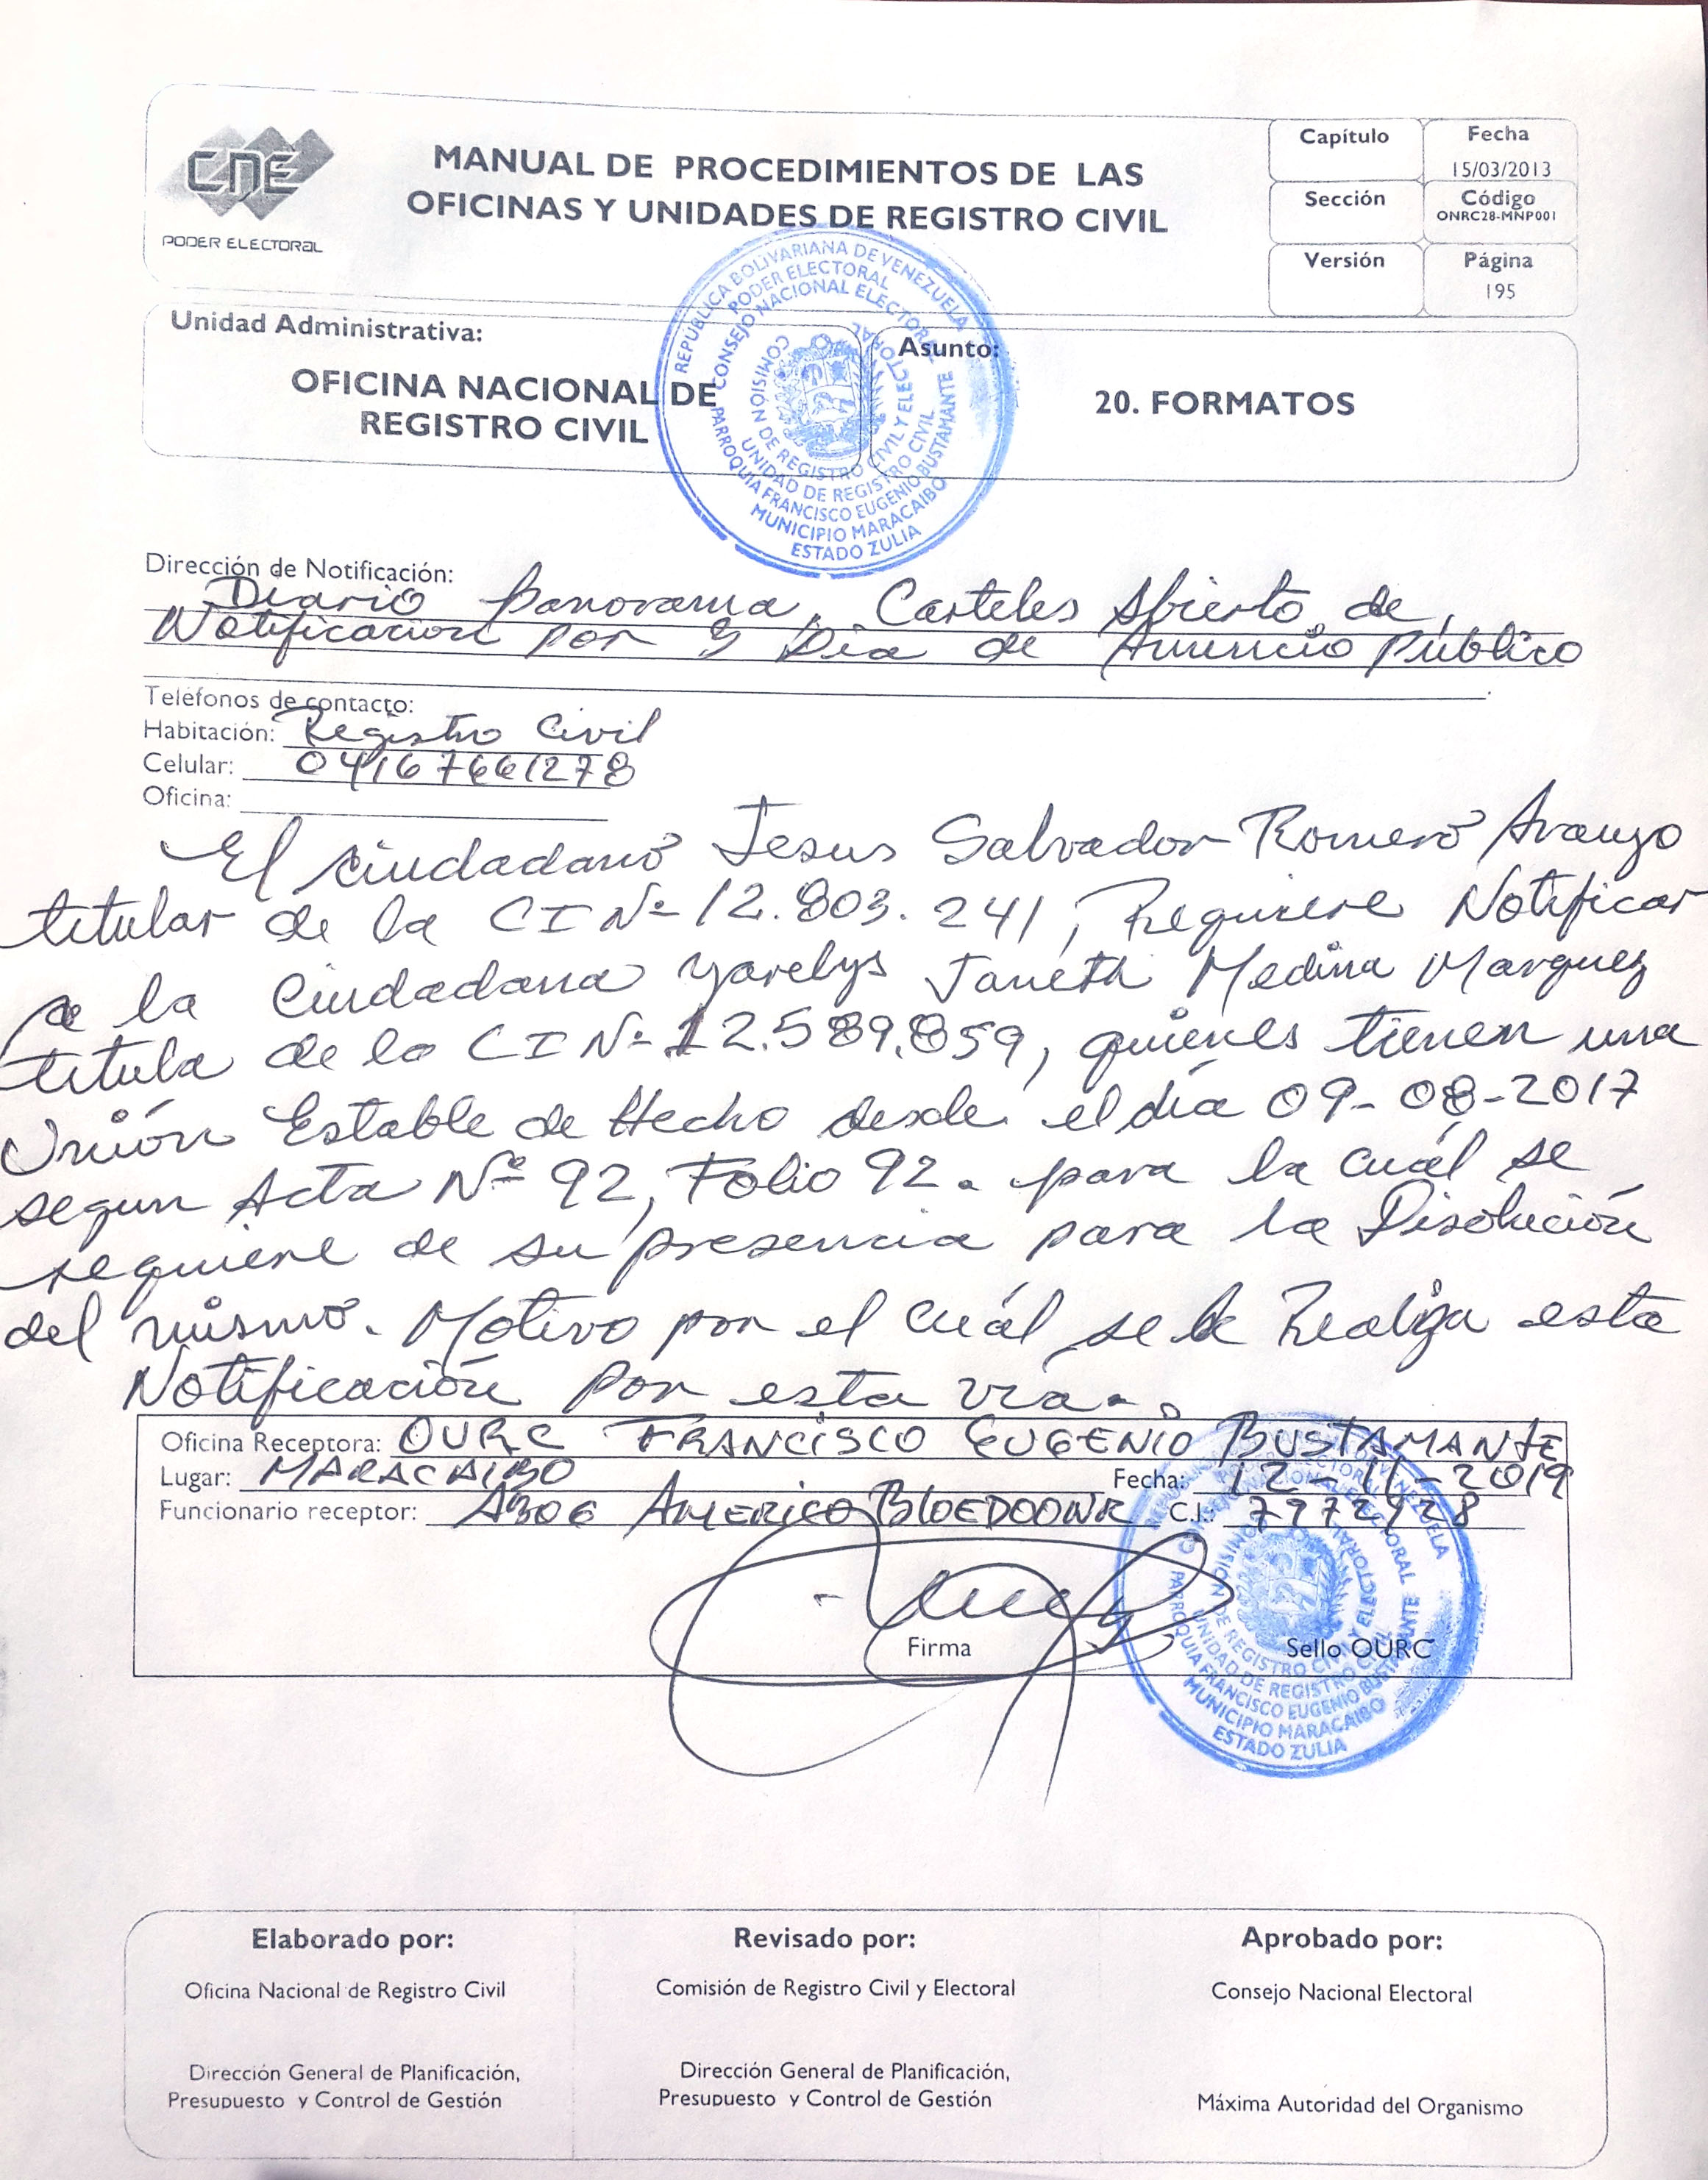 CNE
PODER ELECTORAL
MANUAL DE PROCEDIMIENTOS DE LAS
OFICINAS Y UNIDADES DE REGISTRO CIVIL
Capítulo
Fecha
15/03/2013
Sección
Código
ONRC28-MNP001
Versión
Página
195
Unidad Administrativa:
OFICINA NACIONAL DE
REGISTRO CIVIL
Asunto:
20. FORMATOS
REPÚBLICA BOLIVARIANA DE VENEZUELA
PODER ELECTORAL
CONSEJO NACIONAL ELECTORAL
COMISIÓN DE REGISTRO CIVIL Y ELECTORAL
UNIDAD DE REGISTRO CIVIL
PARROQUIA FRANCISCO EUGENIO BUSTAMANTE
MUNICIPIO MARACAIBO
ESTADO ZULIA
Dirección de Notificación:
Diario panorama, Carteles Abierto de
Notificacion por Dia de Anuncio Público
Teléfonos de contacto:
Habitación: Registro Civil
Celular: 04167661278
Oficina:
El ciudadano Jesus Salvador Romero Araujo
titular de la CI Nº 12.803.241, Requiere Notificar
a la Ciudadana Yarelys Janeth Medina Marquez
titula de la CI Nº 12.589.859, quienes tienen una
Unión Estable de Hecho desde el día 09-08-2017
segun Acta Nº 92, Folio 92. para la cuál se
requiere de su presencia para la Disolución
del mismo. Motivo por el cuál se le Realiza esta
Notificación por esta vía.
Oficina Receptora: OURC FRANCISCO EUGENIO BUSTAMANTE
Lugar: MARACAIBO Fecha: 12-11-2019
Funcionario receptor: ABOG AMERICO BLOEDOORN C.I.: 7972928
Firma
Sello OURC
REPÚBLICA BOLIVARIANA DE VENEZUELA
PODER ELECTORAL
CONSEJO NACIONAL ELECTORAL
COMISIÓN DE REGISTRO CIVIL Y ELECTORAL
UNIDAD DE REGISTRO CIVIL
PARROQUIA FRANCISCO EUGENIO BUSTAMANTE
MUNICIPIO MARACAIBO
ESTADO ZULIA
Elaborado por:
Oficina Nacional de Registro Civil
Dirección General de Planificación,
Presupuesto y Control de Gestión
Revisado por:
Comisión de Registro Civil y Electoral
Dirección General de Planificación,
Presupuesto y Control de Gestión
Aprobado por:
Consejo Nacional Electoral
Máxima Autoridad del Organismo